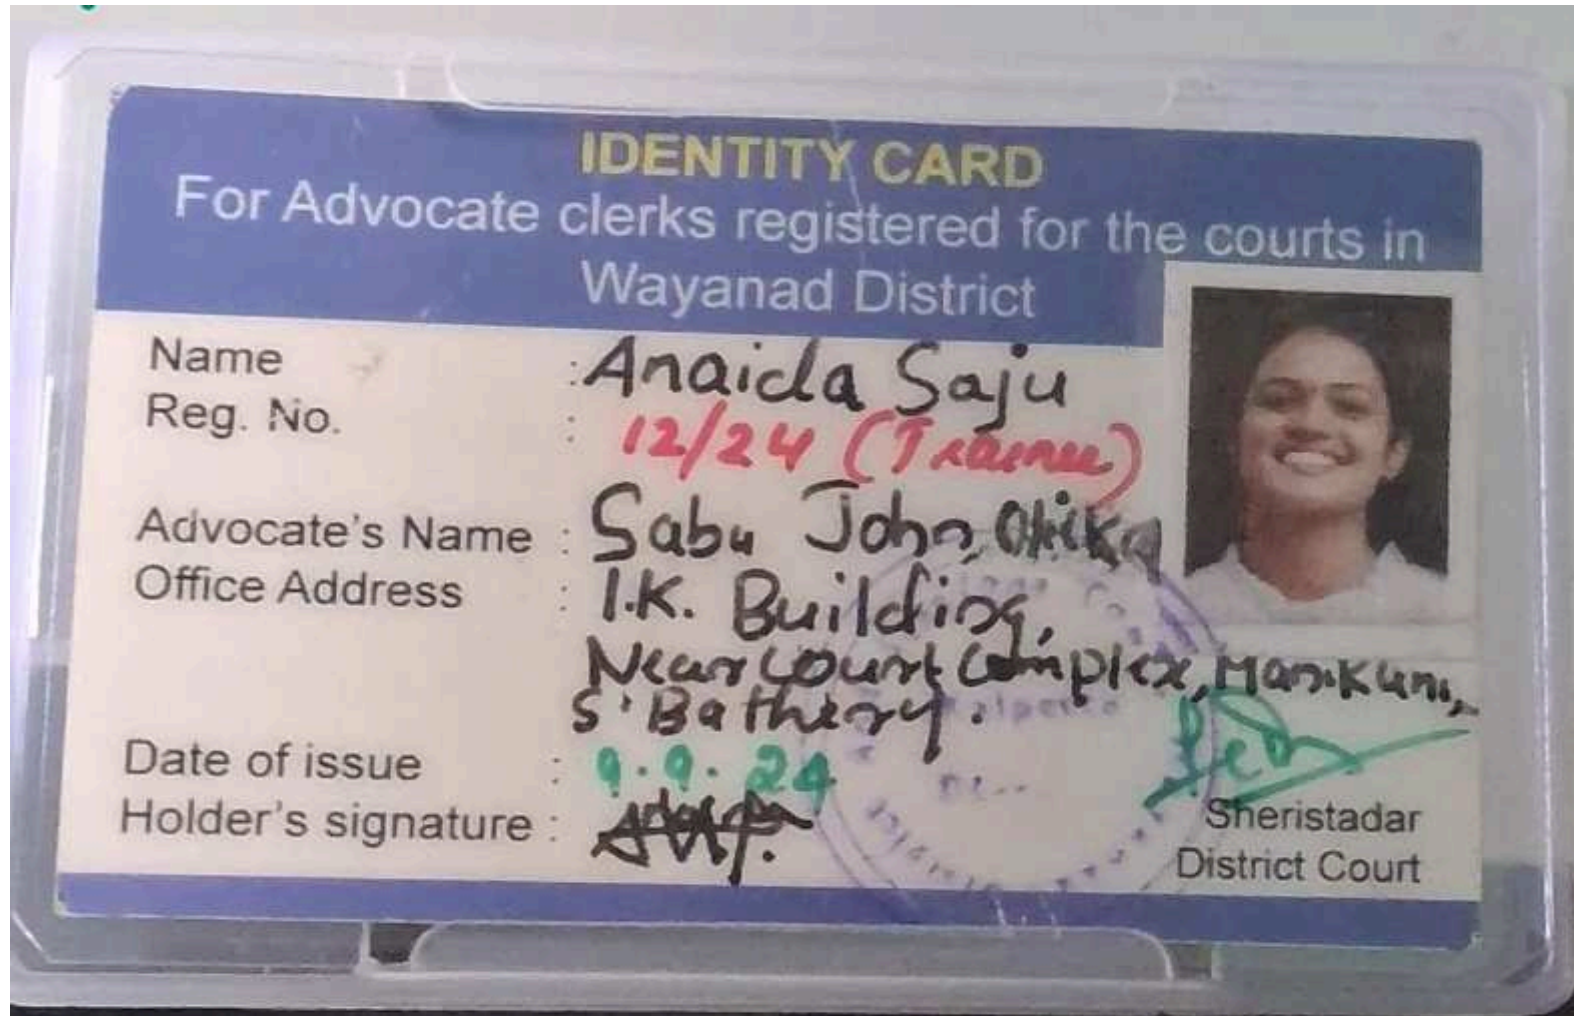 IDENTITY CARD
For Advocate clerks registered for the courts in
Wayanad District
Name : Anaida Saju
Reg. No. : 12/24 (Trainee)
Advocate's Name : Sabu John,
Office Address : I.K. Building,
Near Court Complex, Manikuni,
S' Bathery.
Date of issue : 9.9.24
Holder's signature :
Sheristadar
District Court